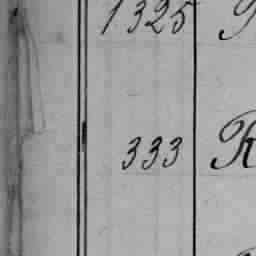 1325
333 R